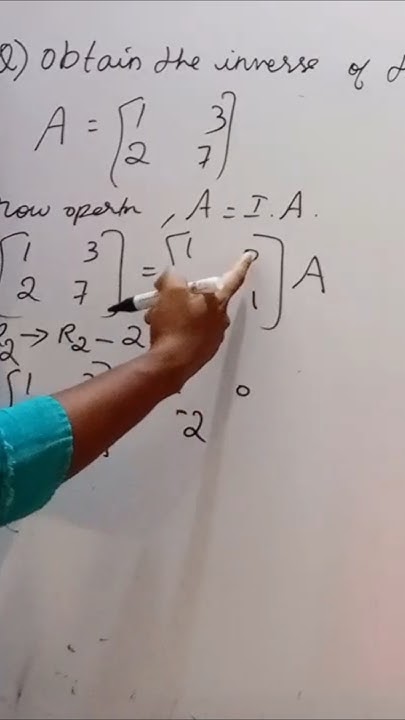 Q) Obtain the inverse of
A = [1 3
2 7]
row opern , A = I.A.
[1 3
2 7] = [1 0
1] A
R2 → R2 - 2
[1 0
-2